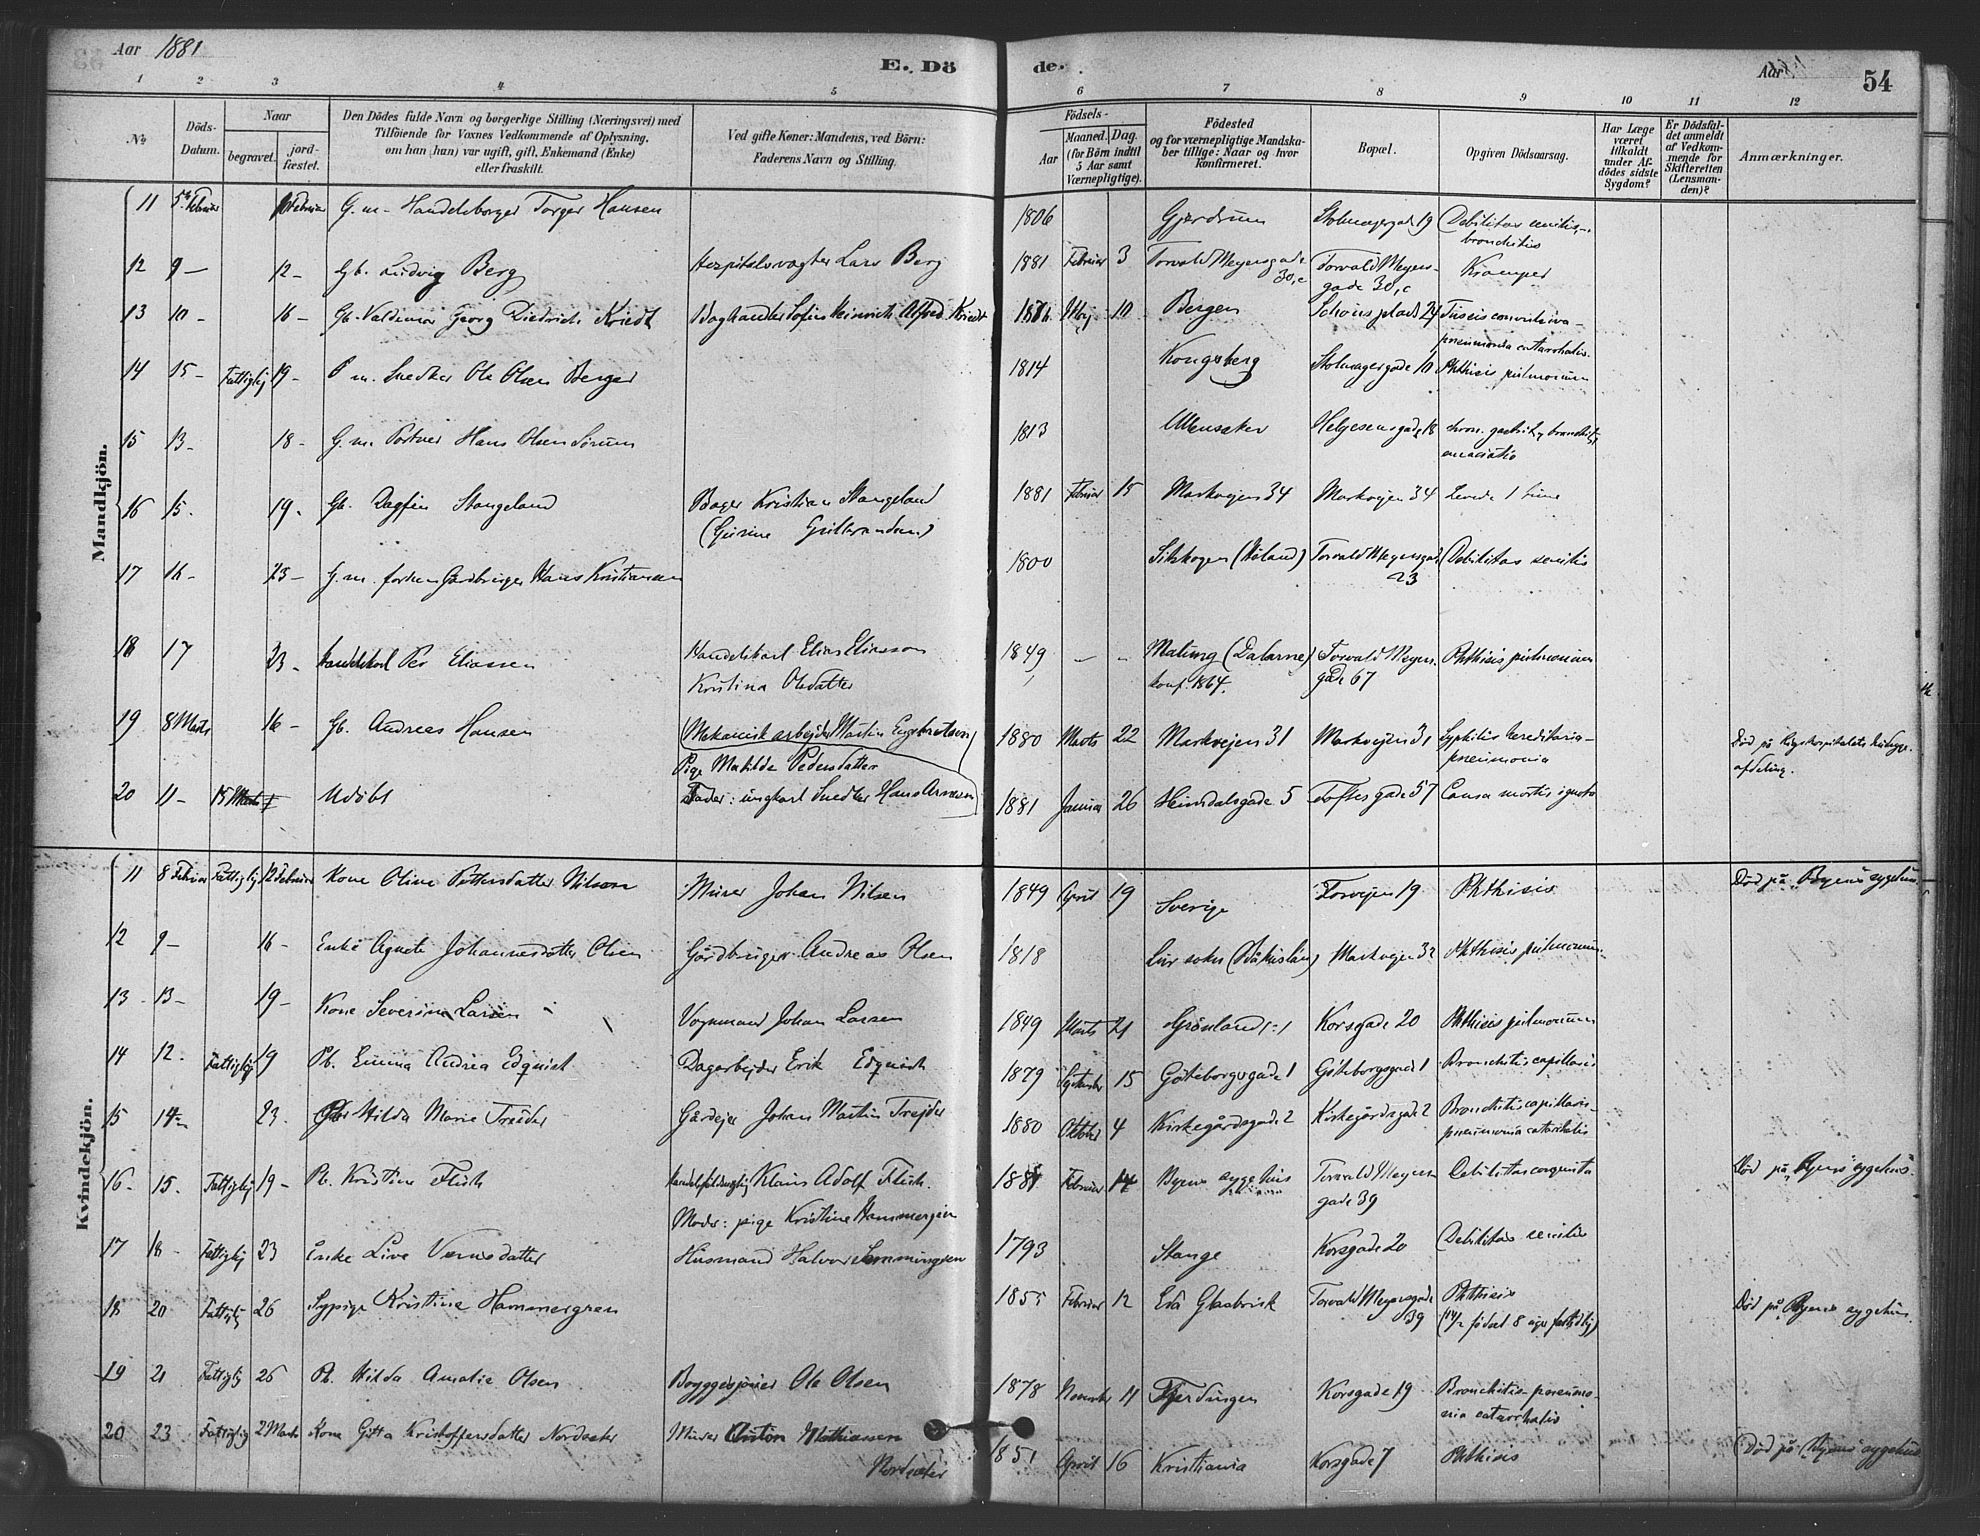 Aar 1881
E. Dö
de.
Aar
54
1 2 3 4 5 6 7 8 9 10 11 12
No
Döds-Datum.
Naar
begravet.
jordfæstet.
Den Dödes fulde Navn og borgerlige Stilling (Næringsvei) med
Tilföiende for Voxnes Vedkommende af Oplysning,
om han (hun) var ugift, gift, Enkemand (Enke)
eller fraskilt.
Ved gifte Koner: Mandens, ved Börn:
Faderens Navn og Stilling.
Födsels-
Aar
Maaned. Dag.
(for Börn indtil
5 Aar samt
Værnepligtige).
Födested
og for værnepligtige Mandska-
ber tillige: Naar og hvor
konfirmeret.
Bopæl.
Opgiven Dödsaarsag.
Har Læge
været
tilkaldt
under Af-
dödes sidste
Sygdom?
Er Dödsfal-
det anmeldt
af Vedkom-
mende for
Skifteretten
(Lensman-
den)?
Anmærkninger.
Mandkjön.
11 5te Februar Februar G. m. Handelsborger Torger Hansen 1806 Gjerdrum 19 Debilitas senilis,
bronchitis
12 9 – 12 – Gb. Ludvig Berg Hospitalsvagter Lars Berg 1881 Februar 3 Torvald Meyersgade
30,c Torvald Meyers-
gade 30,c Kramper
13 10 – 16 – Gb. Valdemar Georg Diedrich Kriedt Boghandler Sofus Heinrich Alfred Kriedt 10 Bergen Schous plads
pneumonia catarrhalis.
14 15 – Fattiglig 19 – Snedker Ole Olsen Berger 1814 Kongsberg 10 Phthisis pulmonum
15 13 – 18 – G. m. Hans Olsen Sörum 1813 Ullensaker Helgesensgade 18
emaciatio
16 15. 19. Gb. Dagfin Stangeland Bager Kristian Stangeland
1881 Februar 15 Markvejen 34 Markvejen 34 Levede 1 time
17 16 – 23 – G. m. Hans Kristiansen 1800 (Höland) Torvald Meyersgade
23 Debilitas senilis
18 17 23 – Handelskarl Per Eliassen Handelskarl Elias Eliasson
Kristina Olsdatter 1849 – – Malung (Dalarne)
konf. 1864. Torvald Meyers
gade 67 Phthisis pulmonum
19 8 Marts 16 – Gb. Andreas Hansen (Mekanisk arbejder Martin Engebretsen)
Pige Matilde Pedersdatter 1880 Marts 22 Markvejen 31 Markvejen 31 Syphilis hereditaria –
pneumonia Död på Rigshospitalets
afdeling.
20 11 – 15 Marts Udöbt Fader: ungkarl Snedker Hans Arnesen 1881 Januar 26 Heimdalsgade 5 Toftesgade 57 Causa mortis ignota
Kvindekjön.
11 8 Februar Fattiglig 12 Februar Kone Oline Pettersdatter Nilsen Murer Johan Nilsen 1849 April 19 Sverige 19 Phthisis Död på Byens sygehus.
12 9 – 16 – Enke Agnete Johannesdatter Olsen Gårdbruger Andreas Olsen 1818 Markvejen 32 Phthisis pulmonum
13 13 – 19 – Kone Severine Larsen Vognmand Johan Larsen 1849 Marts 21 Grönland Korsgade 20 Phthisis pulmonum
14 12. Fattiglig 19 Pb. Emma Andrea Edquist Dagarbejder Erik Edquist 1879 September 15 Göteborgsgade 1 Göteborgsgade 1 Bronchitis capillaris
15 14 – 23. Hilda Marie Trejder Gårdejer Johan Martin Trejder 1880 Oktober 4 Kirkegårdsgade 2 Kirkegårdsgade 2 Bronchitis capillaris –
pneumonia catarrhalis
16 – 15. Fattiglig 19 – Pb. Kristine Klaus Adolf
Moder: pige Kristine Hammergren 1881 Februar 14 Byens sygehus Torvald Meyers
gade 39 Debilitas congenita Död på Byens sygehus.
17 18 – Fattiglig 23 Enke Live Husmand Halvor Semmingsen 1793 Stange Korsgade 20 Debilitas senilis
18 20 Fattiglig 26 Sypige Kristine Hammergren 1855 Februar 12 Eda Glasbruk Torvald Meyersgade
39 Phthisis
Död på Byens sygehus.
19 21 Fattiglig 26 Pb. Hilda Amalie Olsen Ole Olsen 1878 November 11 Fjerdingen Korsgade 19 Bronchitis – pneumo-
nia catarrhalis
20 23 Fattiglig 2 Marts Kone Gitta Kristoffersdatter Nordsæter Murer Anton Mathiassen
Nordsæter 1851 April 16 Kristiania Korsgade 7 Phthisis Död på Byens sygehus